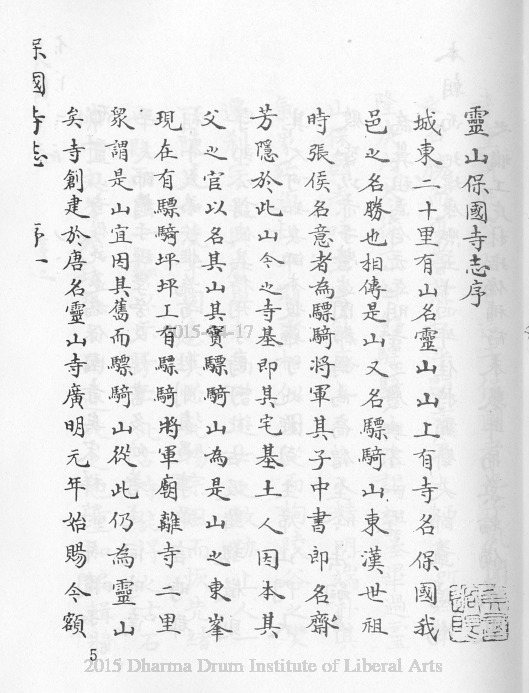 靈山保國寺志序
城東二十里有山名靈山山上有寺名保國我
邑之名勝也相傳是山又名驃騎山東漢世祖
時張侯名意者為驃騎將軍其子中書郎名齋
芳隱於此山今之寺基即其宅基土人因本其
父之官以名其山其實驃騎山為是山之東峯
現在有驃騎坪坪工有驃騎將軍廟離寺二里
衆謂是山宜因其舊而驃騎山從此仍為靈山
矣寺創建於唐名靈山寺廣明元年始賜今額
保國寺志 序一
5
2015-04-17
2015 Dharma Drum Institute of Liberal Arts